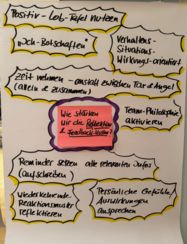 Positiv-Lob-Tafel nutzen
"Ich-Botschaften"
Verhaltens-
Situations-
Wirkungs-orientiert
Zeit nehmen - anstatt zwischen Tür & Angel
(allein & zusammen)
Wie stärken
wir die Reflektion
& Feedback-Kultur?
Team-Philosophie
aktivieren
Reminder setzen alle relevanten Infos
(aufschreiben)
Wiederkehrende
Reaktionsmuster
reflektieren
Persönliche Gefühle/
Auswirkungen
ansprechen